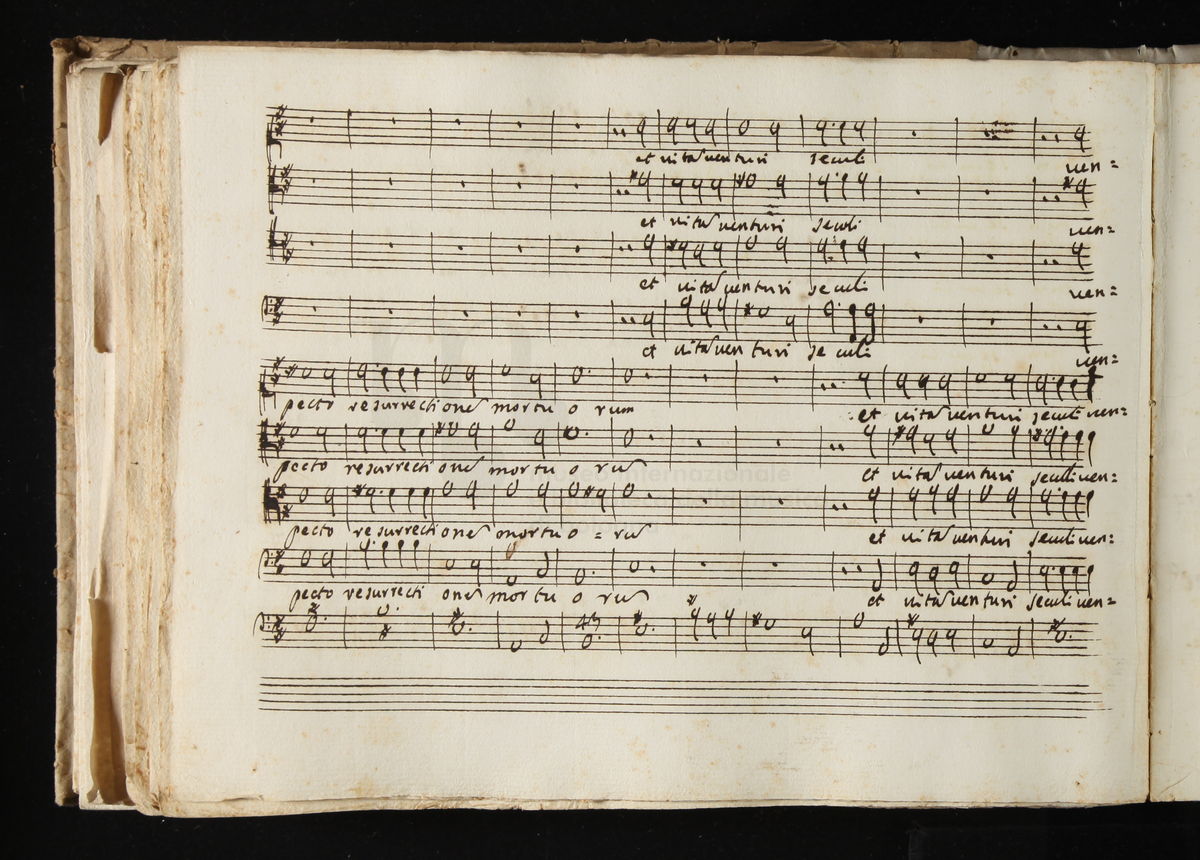 et vitã venturi seculi ven=
et vitã venturi seculi ven=
et vitã venturi seculi ven=
et vitã venturi seculi ven=
pecto resurrectionẽ mortuorum et vitã venturi seculi ven=
pecto resurrectionẽ mortuo rũ et vitã venturi seculi ven=
pecto resurrectionẽ mortuo = rũ et vitã venturi seculi ven=
pecto resurrectionẽ mortuo rũ et vitã venturi seculi ven=
43
internazionale